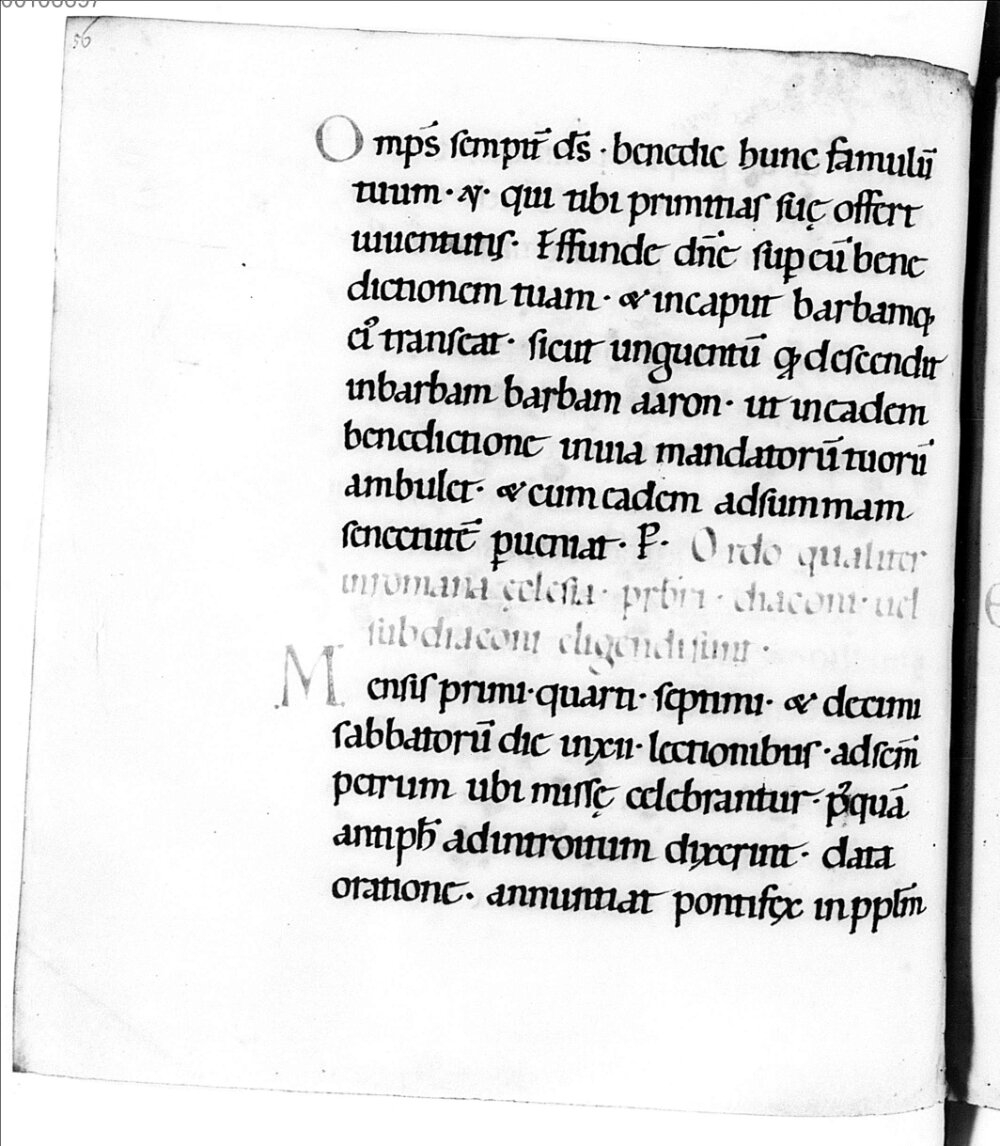 56
Omp̄s sempit̄ d̄s · benedic hunc famulū
tuum · N · qui tibi primitias suę offert
iuuentutis · Effunde dn̄e sup̱ eū bene
dictionem tuam · & incaput barbamq;
ei᾿ transeat · sicut unguentū qđ descendit
inbarbam barbam aaron · ut ineadem
benedictione inuia mandatorū tuorū
ambulet · & cum eadem adsummam
senectutē p̱ueniat · P̱ · Ordo qualiter
inromana ęclesia · prb̄iti · diaconi · uel
subdiaconi eligendi sunt ·
Mensis primi · quarti · septimi · & decimi
sabbatorū die inxii · lectionibus · adscm̄
petrum ubi missę celebrantur · p᾿quā
antiph̄ adintroitum dixerint · data
oratione · annuntiat pontifex inpplm̄